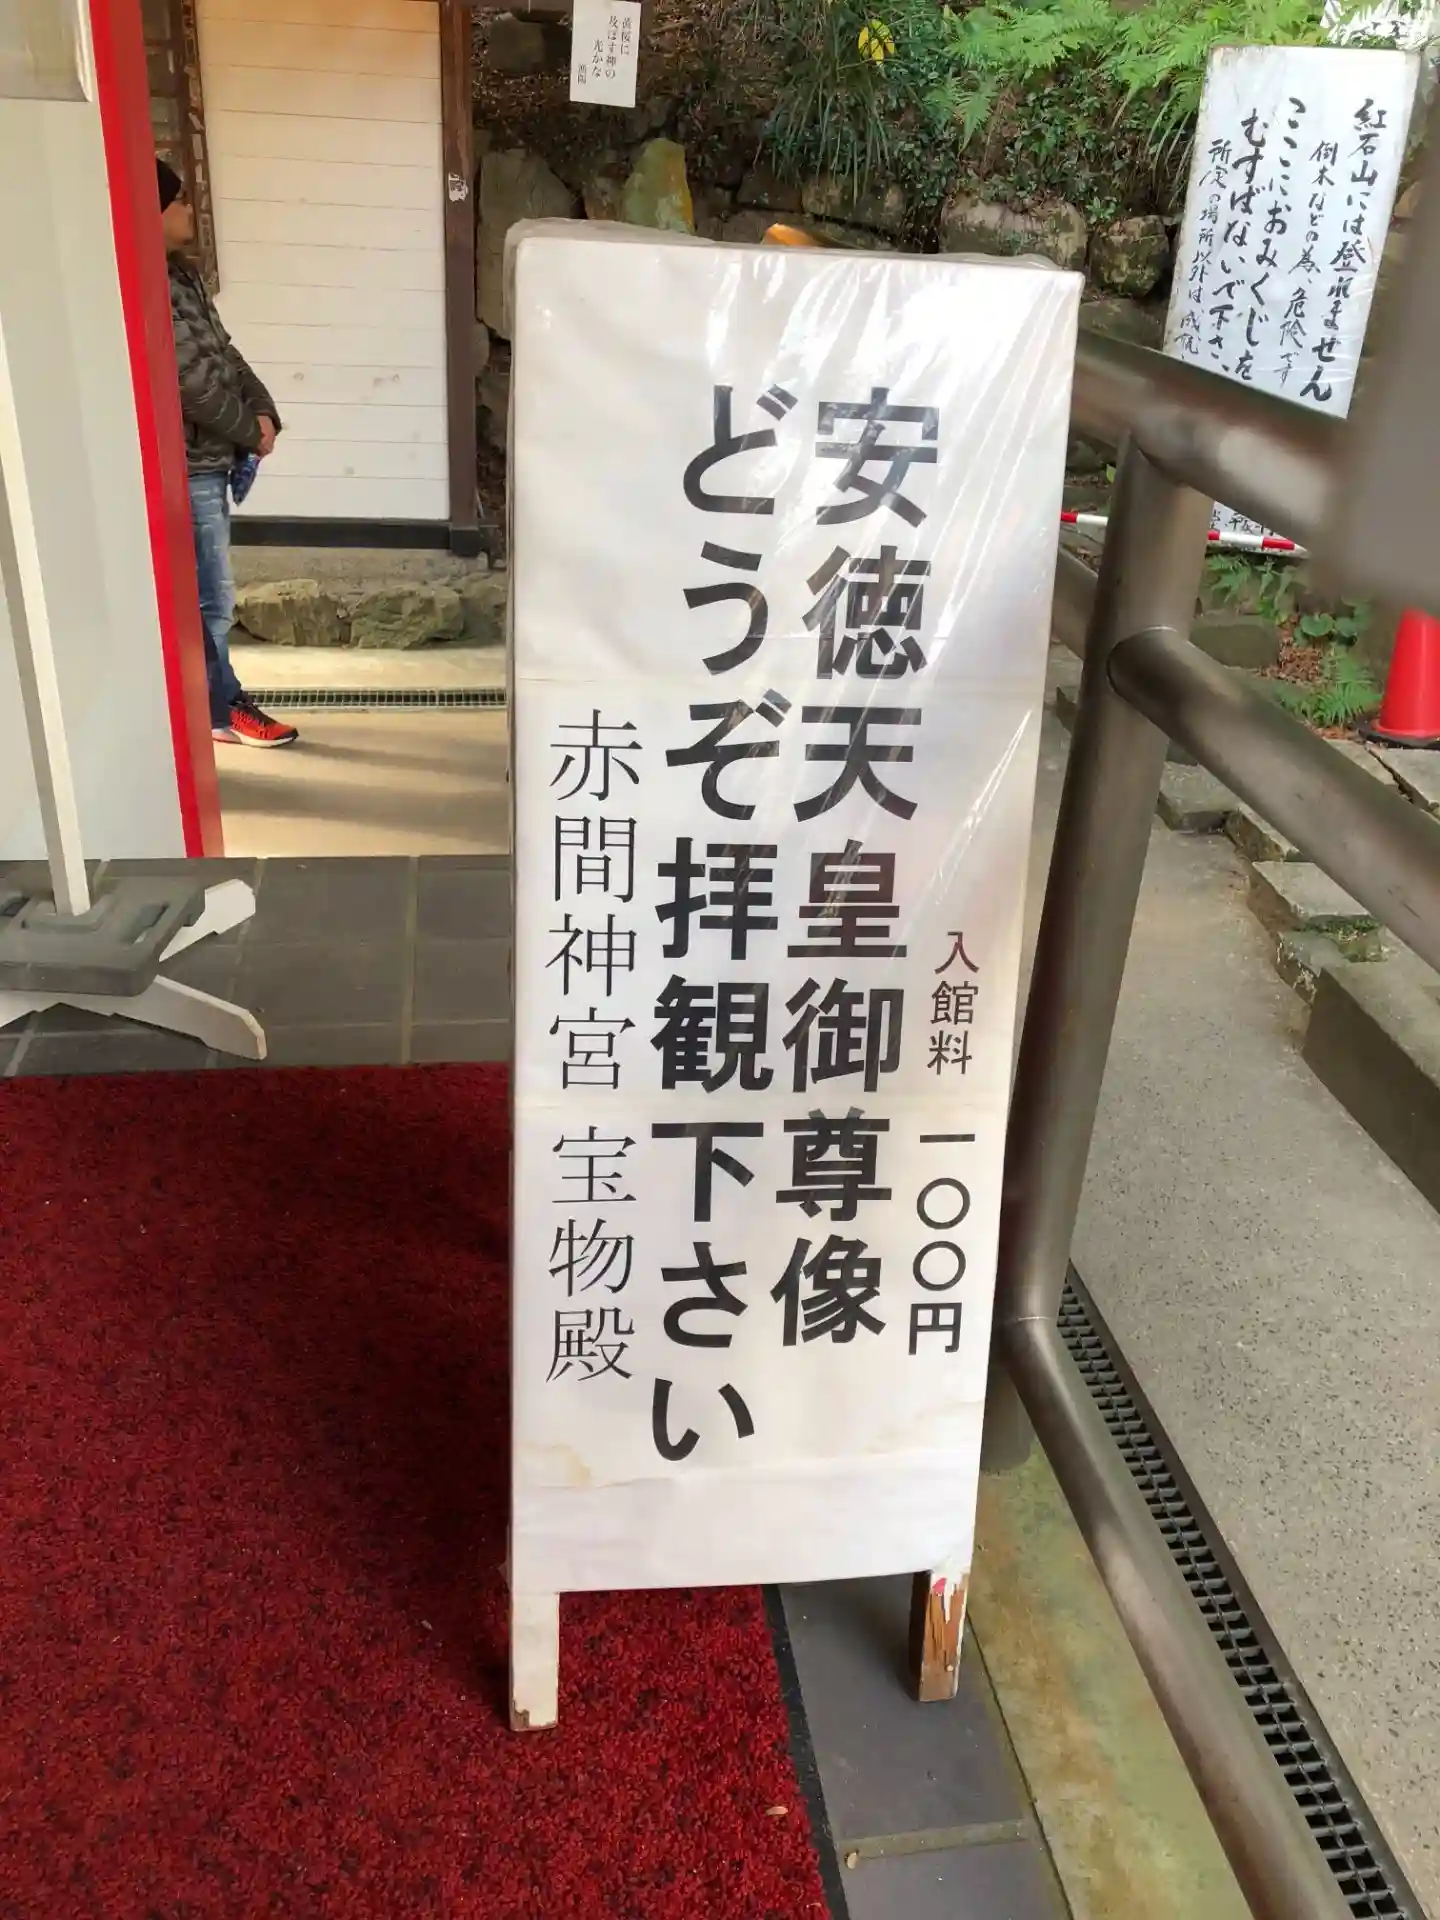 安徳天皇御尊像
どうぞ拝観下さい
赤間神宮 宝物殿
入館料 一〇〇円
紅石山には登れません
倒木などの為、危険です
ここにおみくじを
むすばないで下さい
所定の場所以外は
及ぼす神の
光かな